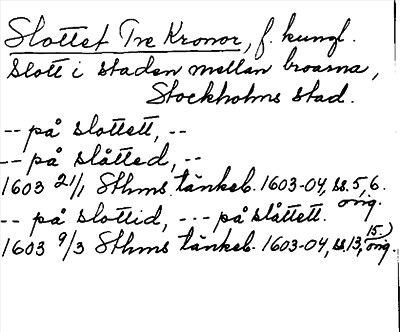 Slottet Tre Kronor, f. kungl.
slott i staden mellan broarna,
Stockholms stad.
-- på slottett, --
-- på slåtted, --
1603 21/1 Sthms. tänkeb. 1603-04, ss. 5, 6.
orig.
-- på slottid, --- på slåttett.
15.)
1603 9/3 Sthms tänkeb. 1603-04, ss. 13, orig.